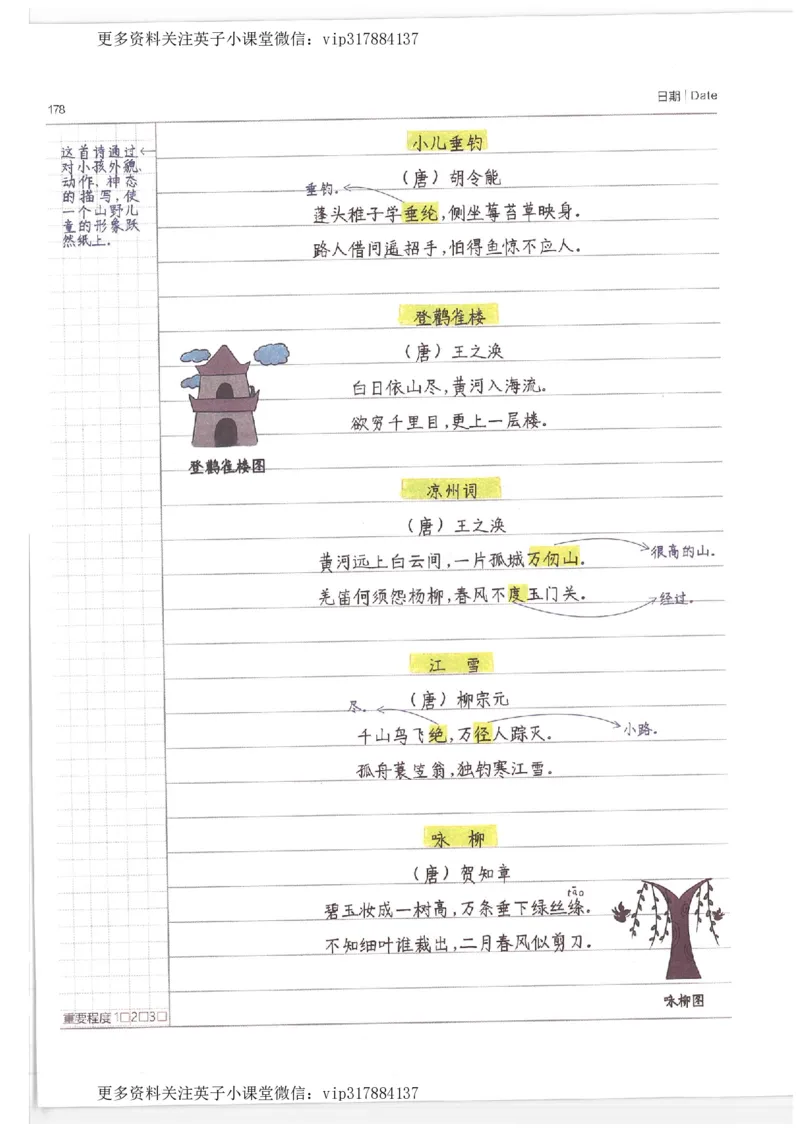 更多资料关注英子小课堂微信：vip317884137
178
日期 | Date
这首诗通过
对小孩外貌、
动作、神态
的描写，使
一个山野儿
童的形象跃
然纸上。
小儿垂钓
（唐）胡令能
垂钓。
蓬头稚子学垂纶，侧坐莓苔草映身。
路人借问遥招手，怕得鱼惊不应人。
登鹳雀楼
（唐）王之涣
白日依山尽，黄河入海流。
欲穷千里目，更上一层楼。
登鹳雀楼图
凉州词
（唐）王之涣
黄河远上白云间，一片孤城万仞山。
很高的山。
羌笛何须怨杨柳，春风不度玉门关。
经过。
江 雪
（唐）柳宗元
尽。
千山鸟飞绝，万径人踪灭。
小路。
孤舟蓑笠翁，独钓寒江雪。
咏 柳
（唐）贺知章
tāo
碧玉妆成一树高，万条垂下绿丝绦。
不知细叶谁裁出，二月春风似剪刀。
咏柳图
重要程度 1□2□3□
更多资料关注英子小课堂微信：vip317884137